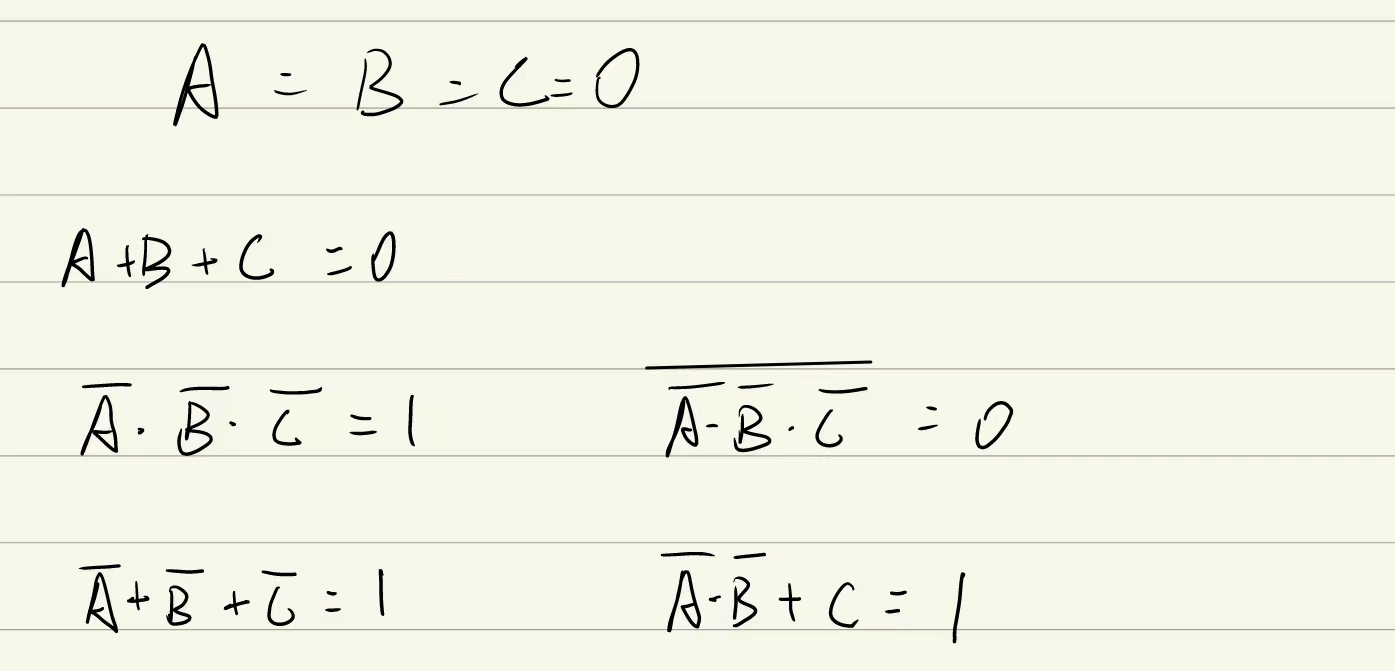 A = B = C = 0
A + B + C = 0
A̅ · B̅ · C̅ = 1
$\overline{\overline{A} \cdot \overline{B} \cdot \overline{C}} = 0$
A̅ + B̅ + C̅ = 1
A̅ · B̅ + C = 1